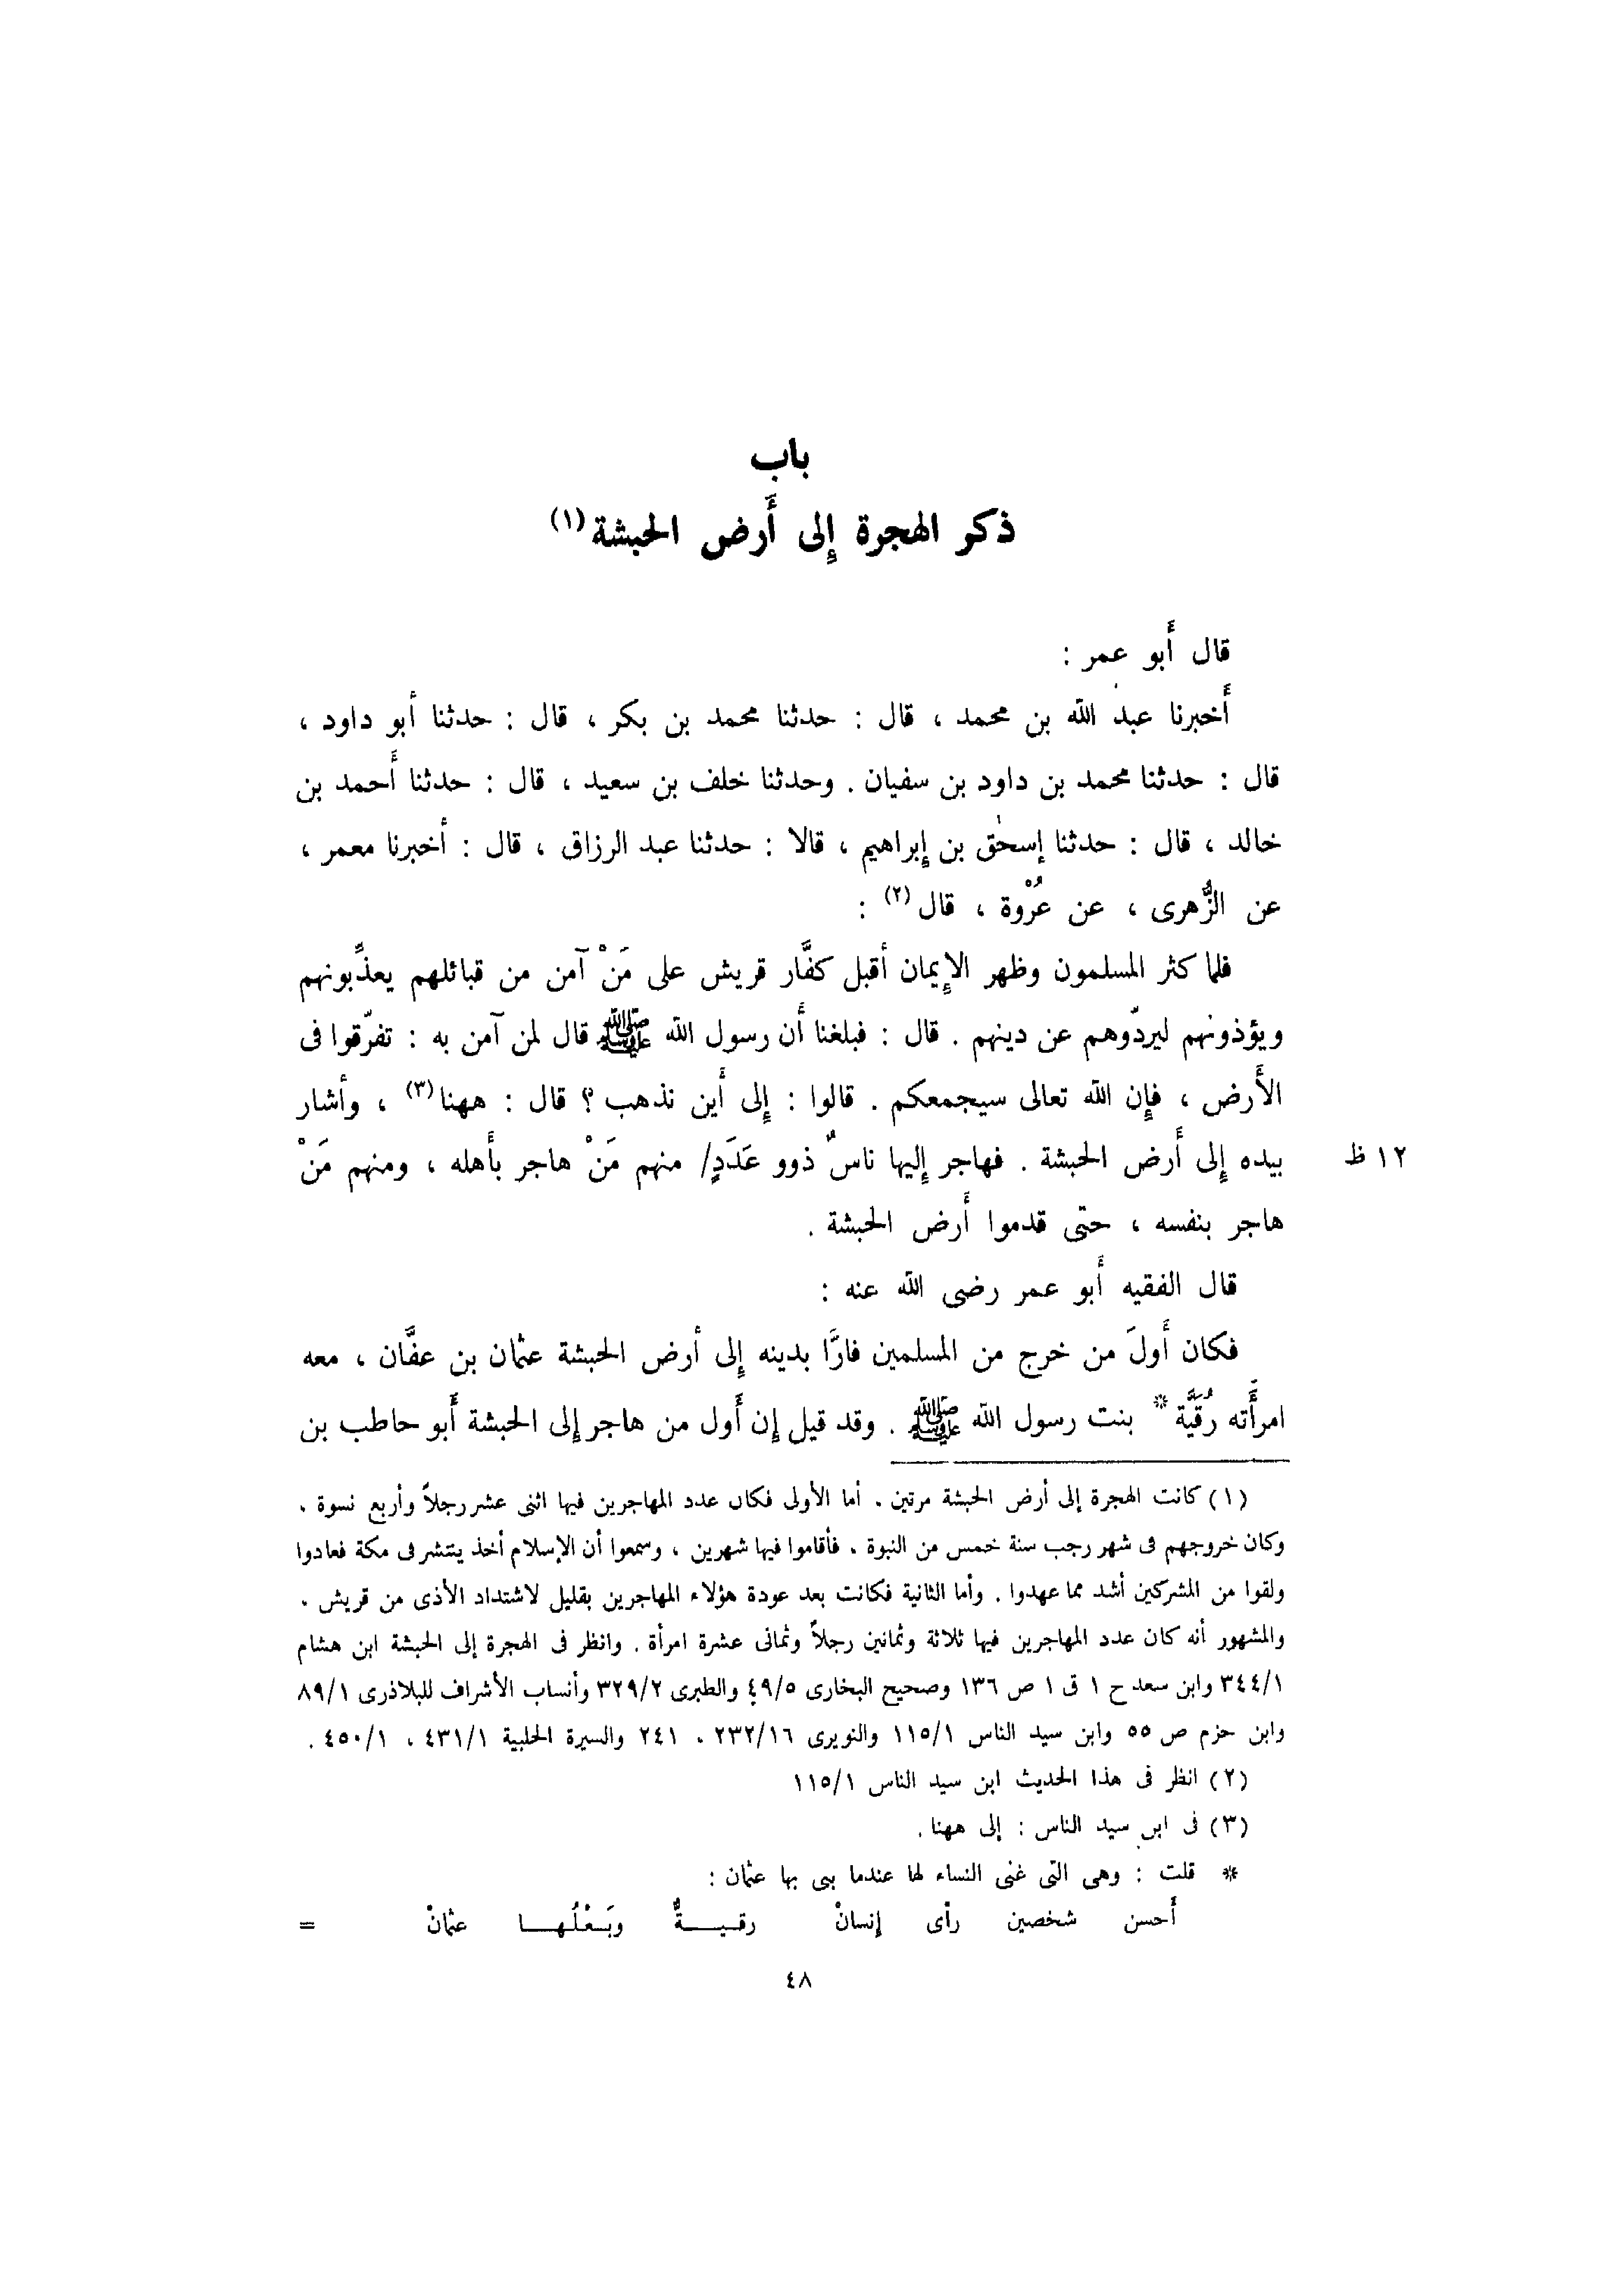 باب
ذكر الهجرة إلى أَرض الحبشة (١)
قال أَبو عمر :
أَخبرنا عبد الله بن محمد ، قال : حدثنا محمد بن بكر ، قال : حدثنا أبو داود ،
قال : حدثنا محمد بن داود بن سفيان . وحدثنا خلف بن سعيد ، قال : حدثنا أَحمد بن
خالد ، قال : حدثنا إسحٰق بن إبراهيم ، قالا : حدثنا عبد الرزاق ، قال : أخبرنا معمر ،
عن الزُّهرى ، عن عُرْوة ، قال (٢) :
فلما كثر المسلمون وظهر الإيمان أقبل كفَّار قريش على مَنْ آمن من قبائلهم يعذِّبونهم
ويؤذونهم ليردّوهم عن دينهم . قال : فبلغنا أَن رسول الله ﷺ قال لمن آمن به : تفرّقوا فى
الأَرض ، فإن الله تعالى سيجمعكم . قالوا : إلى أَين نذهب ؟ قال : ههنا (٣) ، وأشار
بيده إلى أَرض الحبشة . فهاجر إليها ناسٌ ذوو عَدَدٍ/ منهم مَنْ هاجر بأَهله ، ومنهم مَنْ
١٢ ظ
هاجر بنفسه ، حتى قدموا أَرض الحبشة .
قال الفقيه أَبو عمر رضى الله عنه :
فكان أَولَ من خرج من المسلمين فارًّا بدينه إلى أرض الحبشة عثمان بن عفَّان ، معه
امرأَته رُقَيَّة * بنت رسول الله ﷺ . وقد قيل إن أَول من هاجر إلى الحبشة أَبو حاطب بن
(١) كانت الهجرة إلى أرض الحبشة مرتين . أما الأولى فكان عدد المهاجرين فيها اثنى عشر رجلاً وأربع نسوة .
وكان خروجهم فى شهر رجب سنة خمس من النبوة ، فأقاموا فيها شهرين ، وسمعوا أن الإسلام أخذ ينتشر فى مكة فعادوا
ولقوا من المشركين أشد مما عهدوا . وأما الثانية فكانت بعد عودة هؤلاء المهاجرين بقليل لاشتداد الأذى من قريش .
والمشهور أنه كان عدد المهاجرين فيها ثلاثة وثمانين رجلاً وثمانى عشرة امرأة . وانظر فى الهجرة إلى الحبشة ابن هشام
٣٤٤/١ وابن سعد ح ١ ق ١ ص ١٣٦ وصحيح البخارى ٤٩/٥ والطبرى ٣٢٩/٢ وأنساب الأشراف للبلاذرى ٨٩/١
وابن حزم ص ٥٥ وابن سيد الناس ١١٥/١ والنويرى ٢٣٢/١٦ ، ٢٤١ والسيرة الحلبية ٤٣١/١ ، ٤٥٠/١ .
(٢) انظر فى هذا الحديث ابن سيد الناس ١١٥/١
(٣) فى ابن سيد الناس : إلى ههنا .
* قلت : وهى التى غنى النساء لها عندما بنى بها عثمان :
أَحسن شخصين رأى إنسانْ رقيـــةٌ وبَــعْلُهـــا عثمانْ =
٤٨